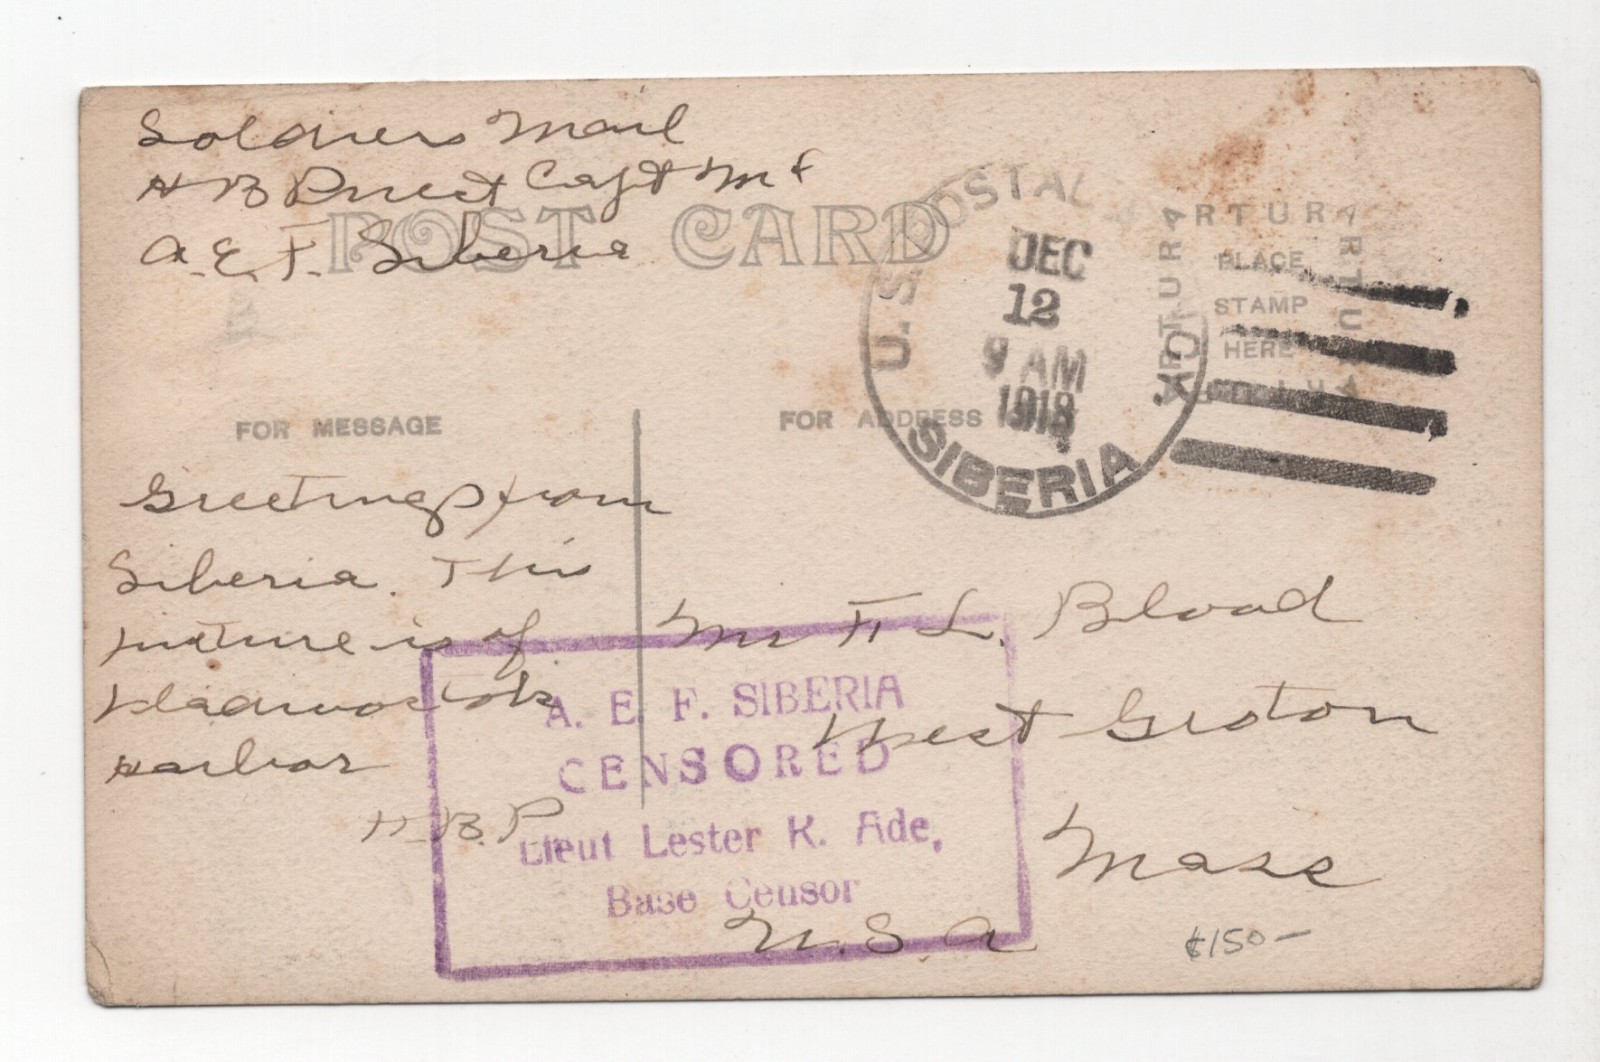 Soldiers Mail
H B Priest Capt M C
A. E. F. Siberia
POST CARD
U.S. POSTAL AGCY.
DEC
12
9 AM
1918
SIBERIA
ARTURA
ARTURA
ARTURA
ARTURA
PLACE
STAMP
HERE
FOR MESSAGE
FOR ADDRESS
Greetings from
Siberia. This
picture is of
Vladivostok
Harbor
H. B. P.
Mr F. L. Blood
West Groton
Mass
U.S.A
A. E. F. SIBERIA
CENSORED
Lieut Lester K. Ade,
Base Censor
$150-